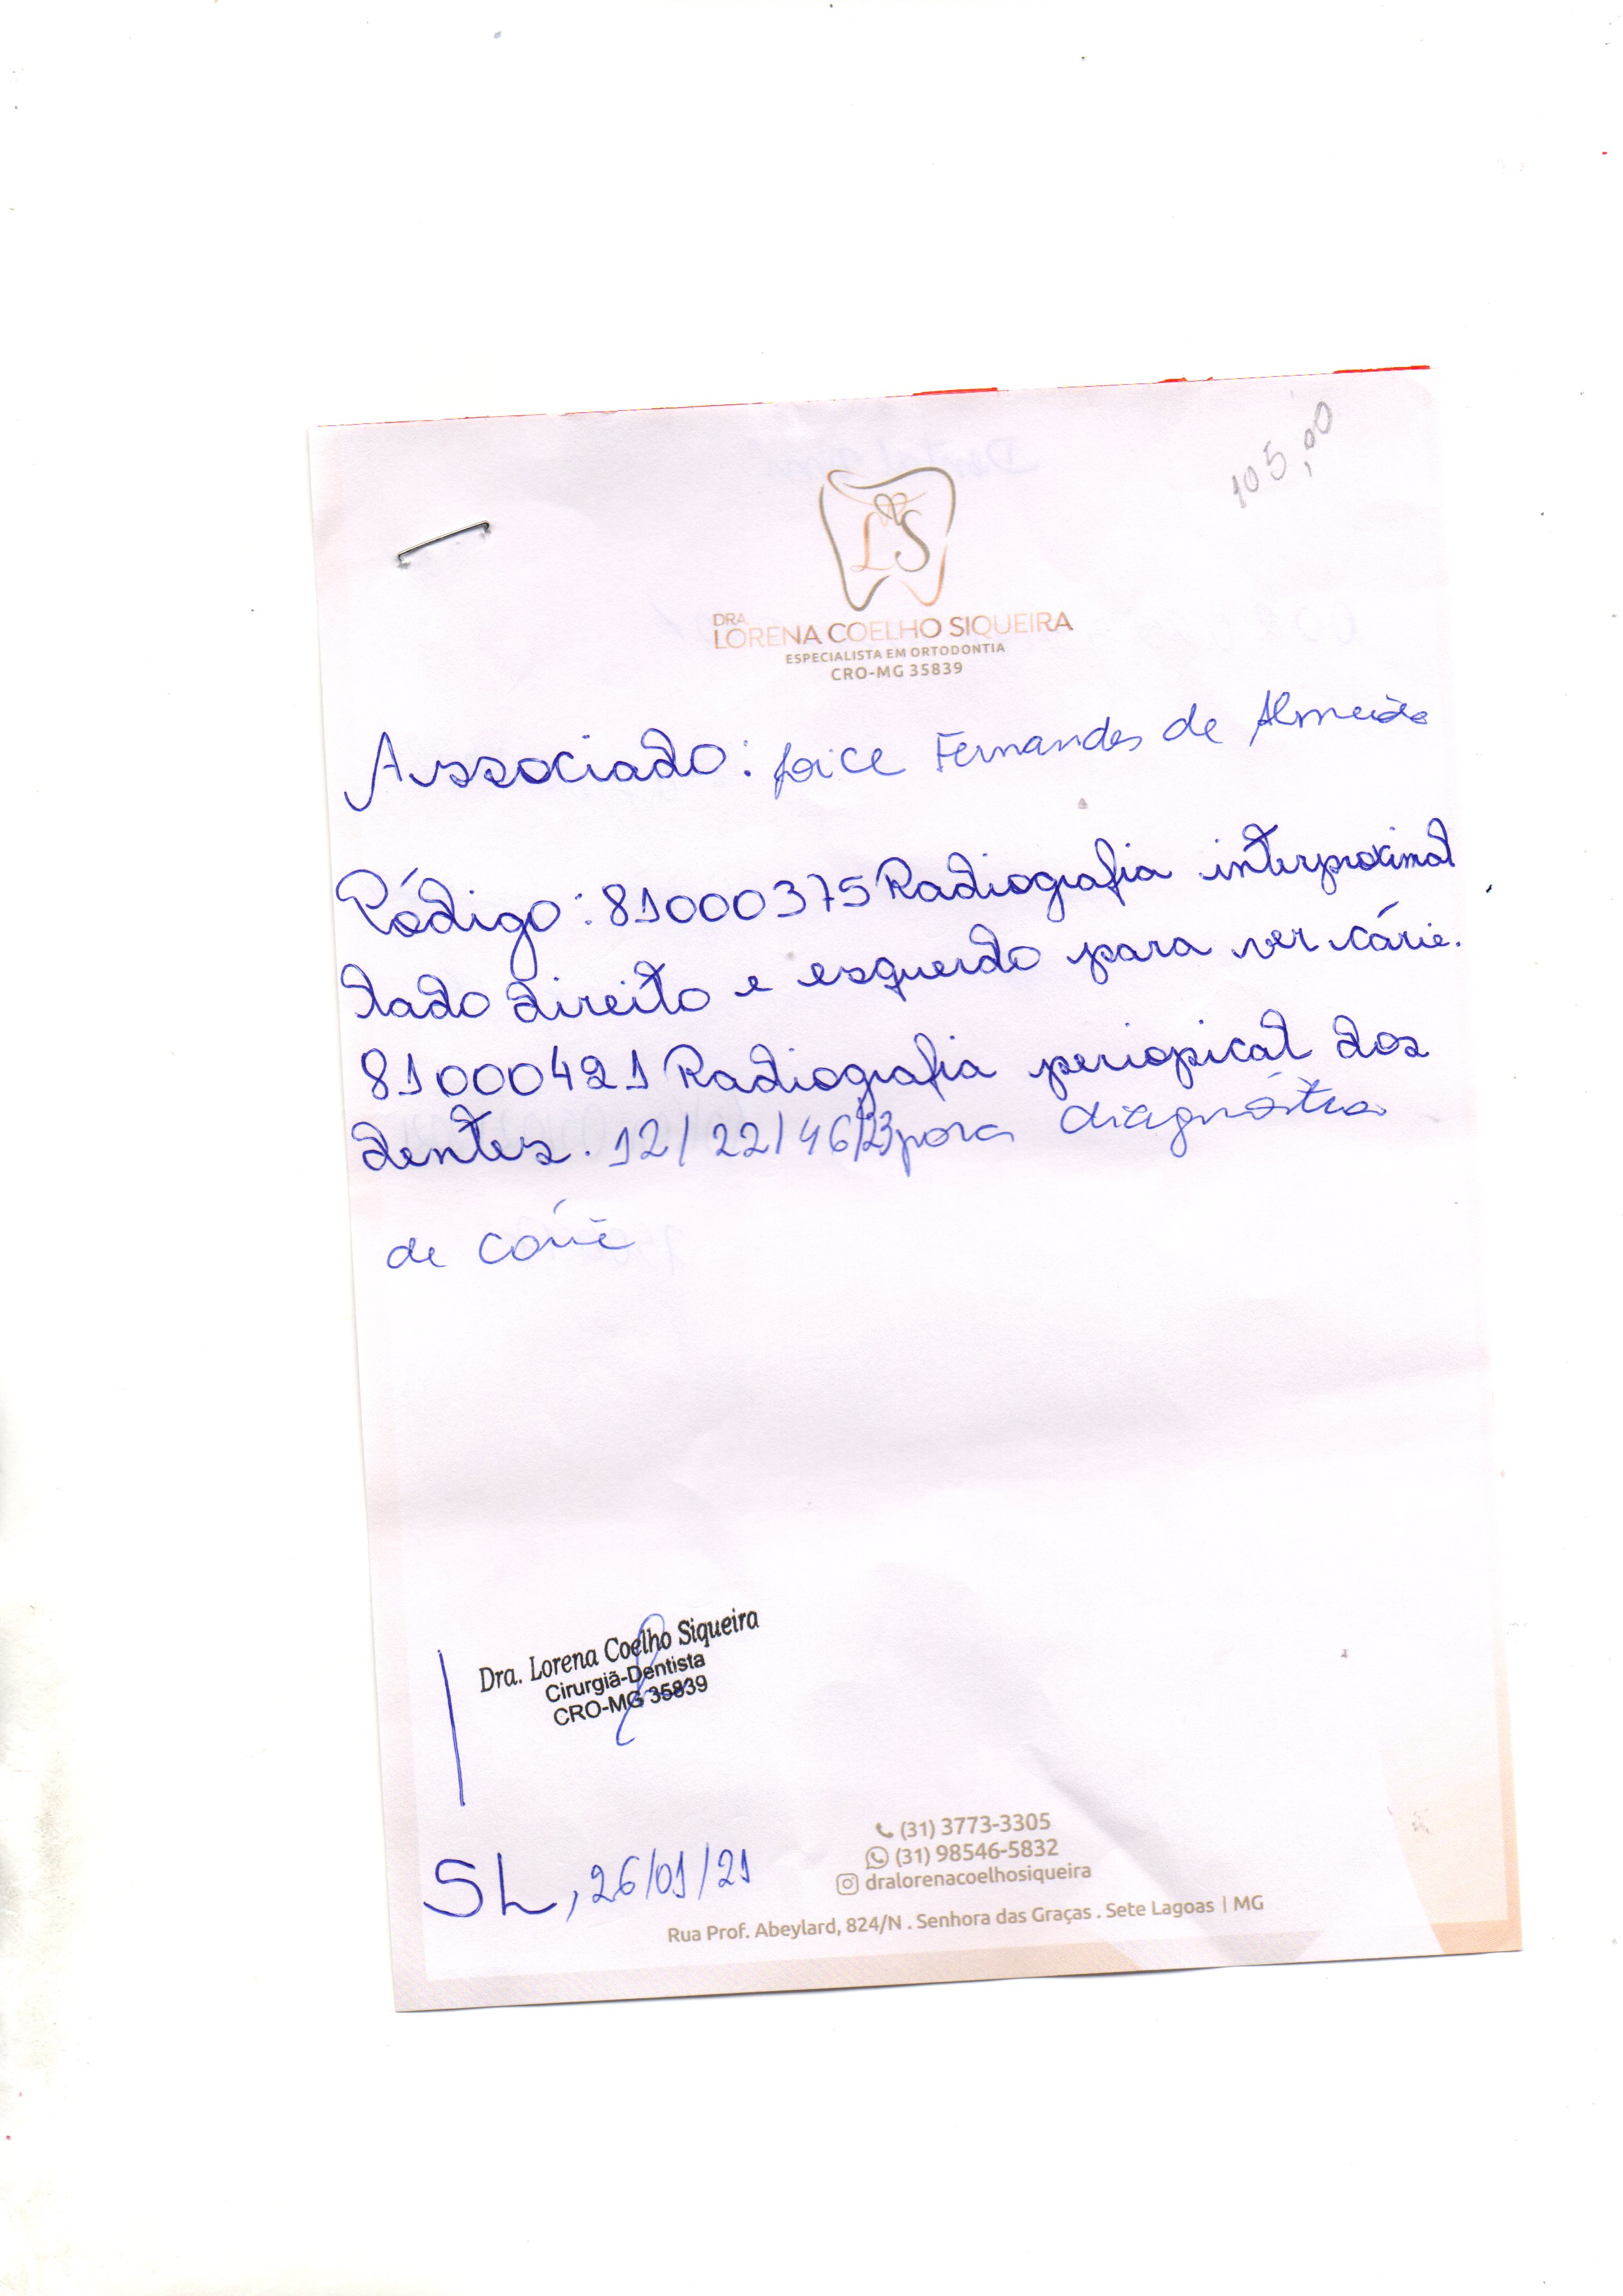 105,00
LS
DRA.
LORENA COELHO SIQUEIRA
ESPECIALISTA EM ORTODONTIA
CRO-MG 35839
Associado: Joice Fernandes de Almeida
Código: 81000375 Radiografia interproximal
lado direito e esquerdo para ver cárie.
81000421 Radiografia periapical dos
dentes. 12/22/46/23 para diagnóstico
de cárie
Dra. Lorena Coelho Siqueira
Cirurgiã-Dentista
CRO-MG 35839
SL, 26/01/21
(31) 3773-3305
(31) 98546-5832
dralorenacoelhosiqueira
Rua Prof. Abeylard, 824/N . Senhora das Graças . Sete Lagoas | MG